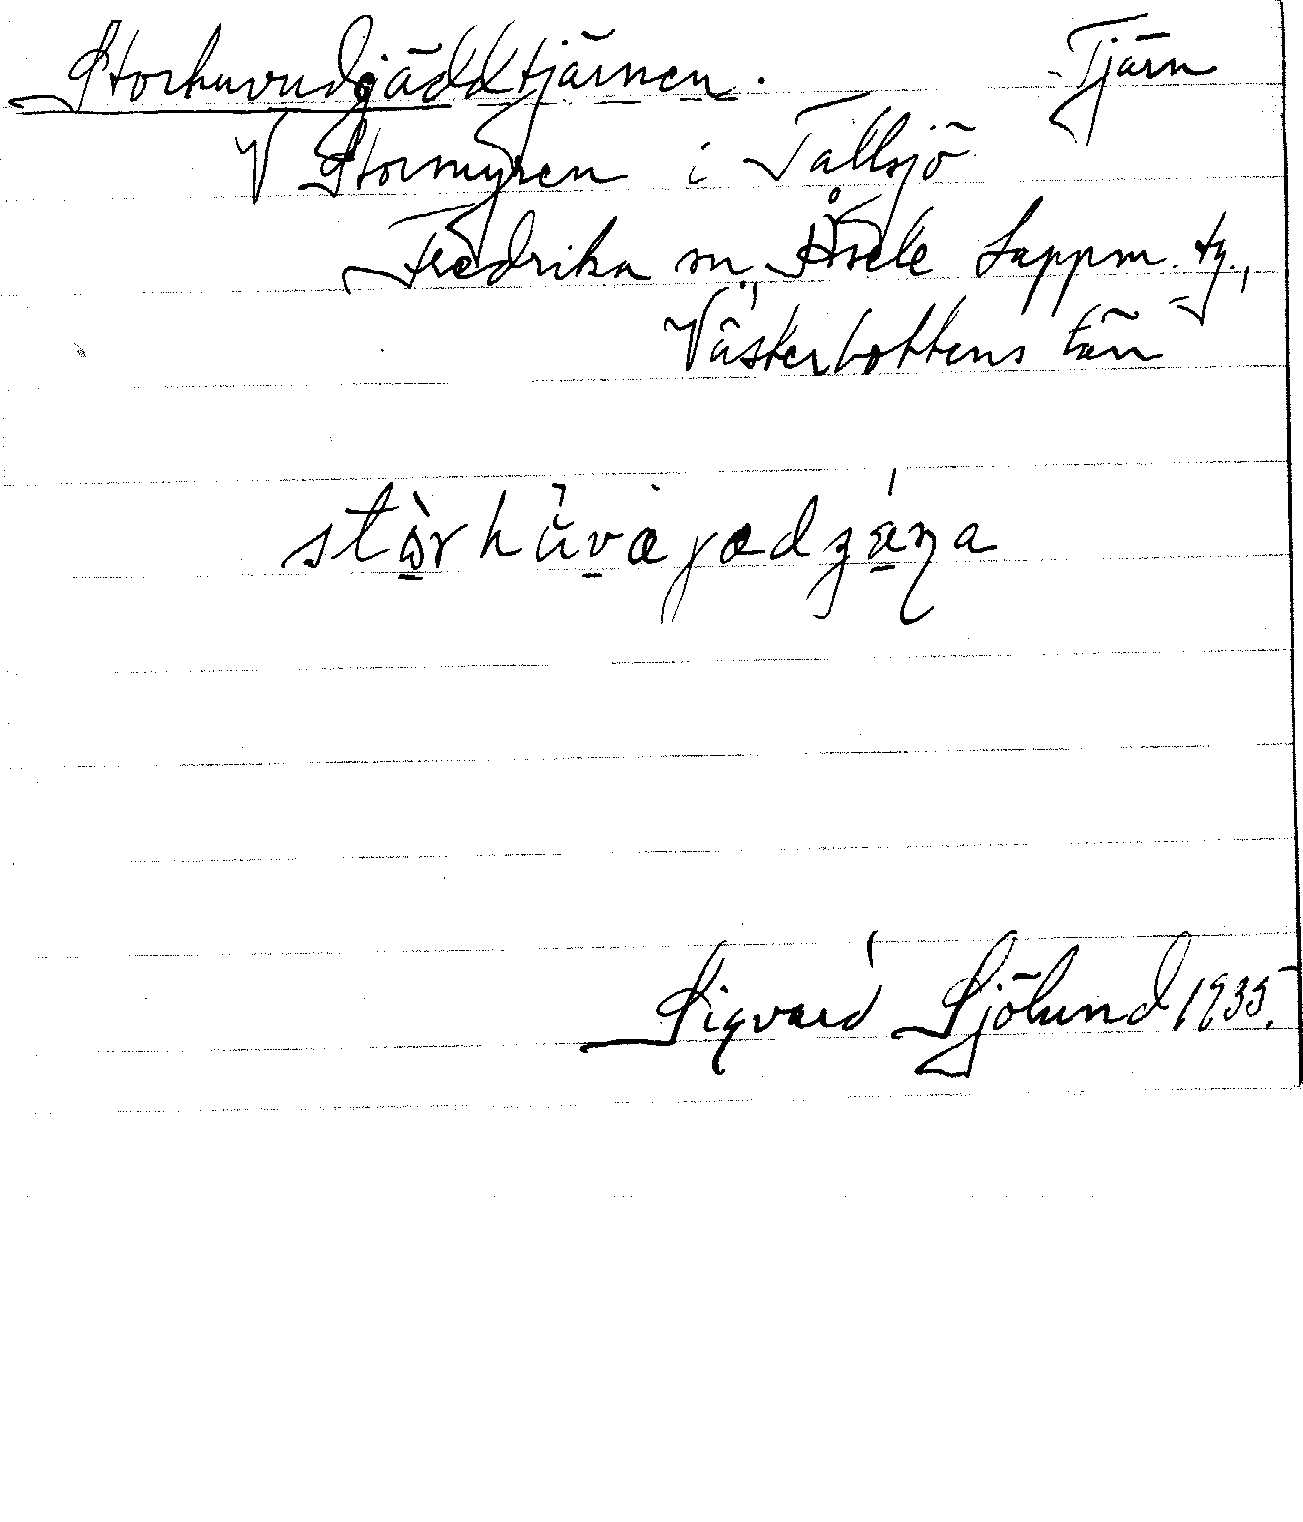 Storhuvudgäddtjärnen. Tjärn
V Stormyren i Tallsjö
Fredrika sn, Åsele Lappm. tg.,
Västerbottens län
Sigvard Sjölund 1935.